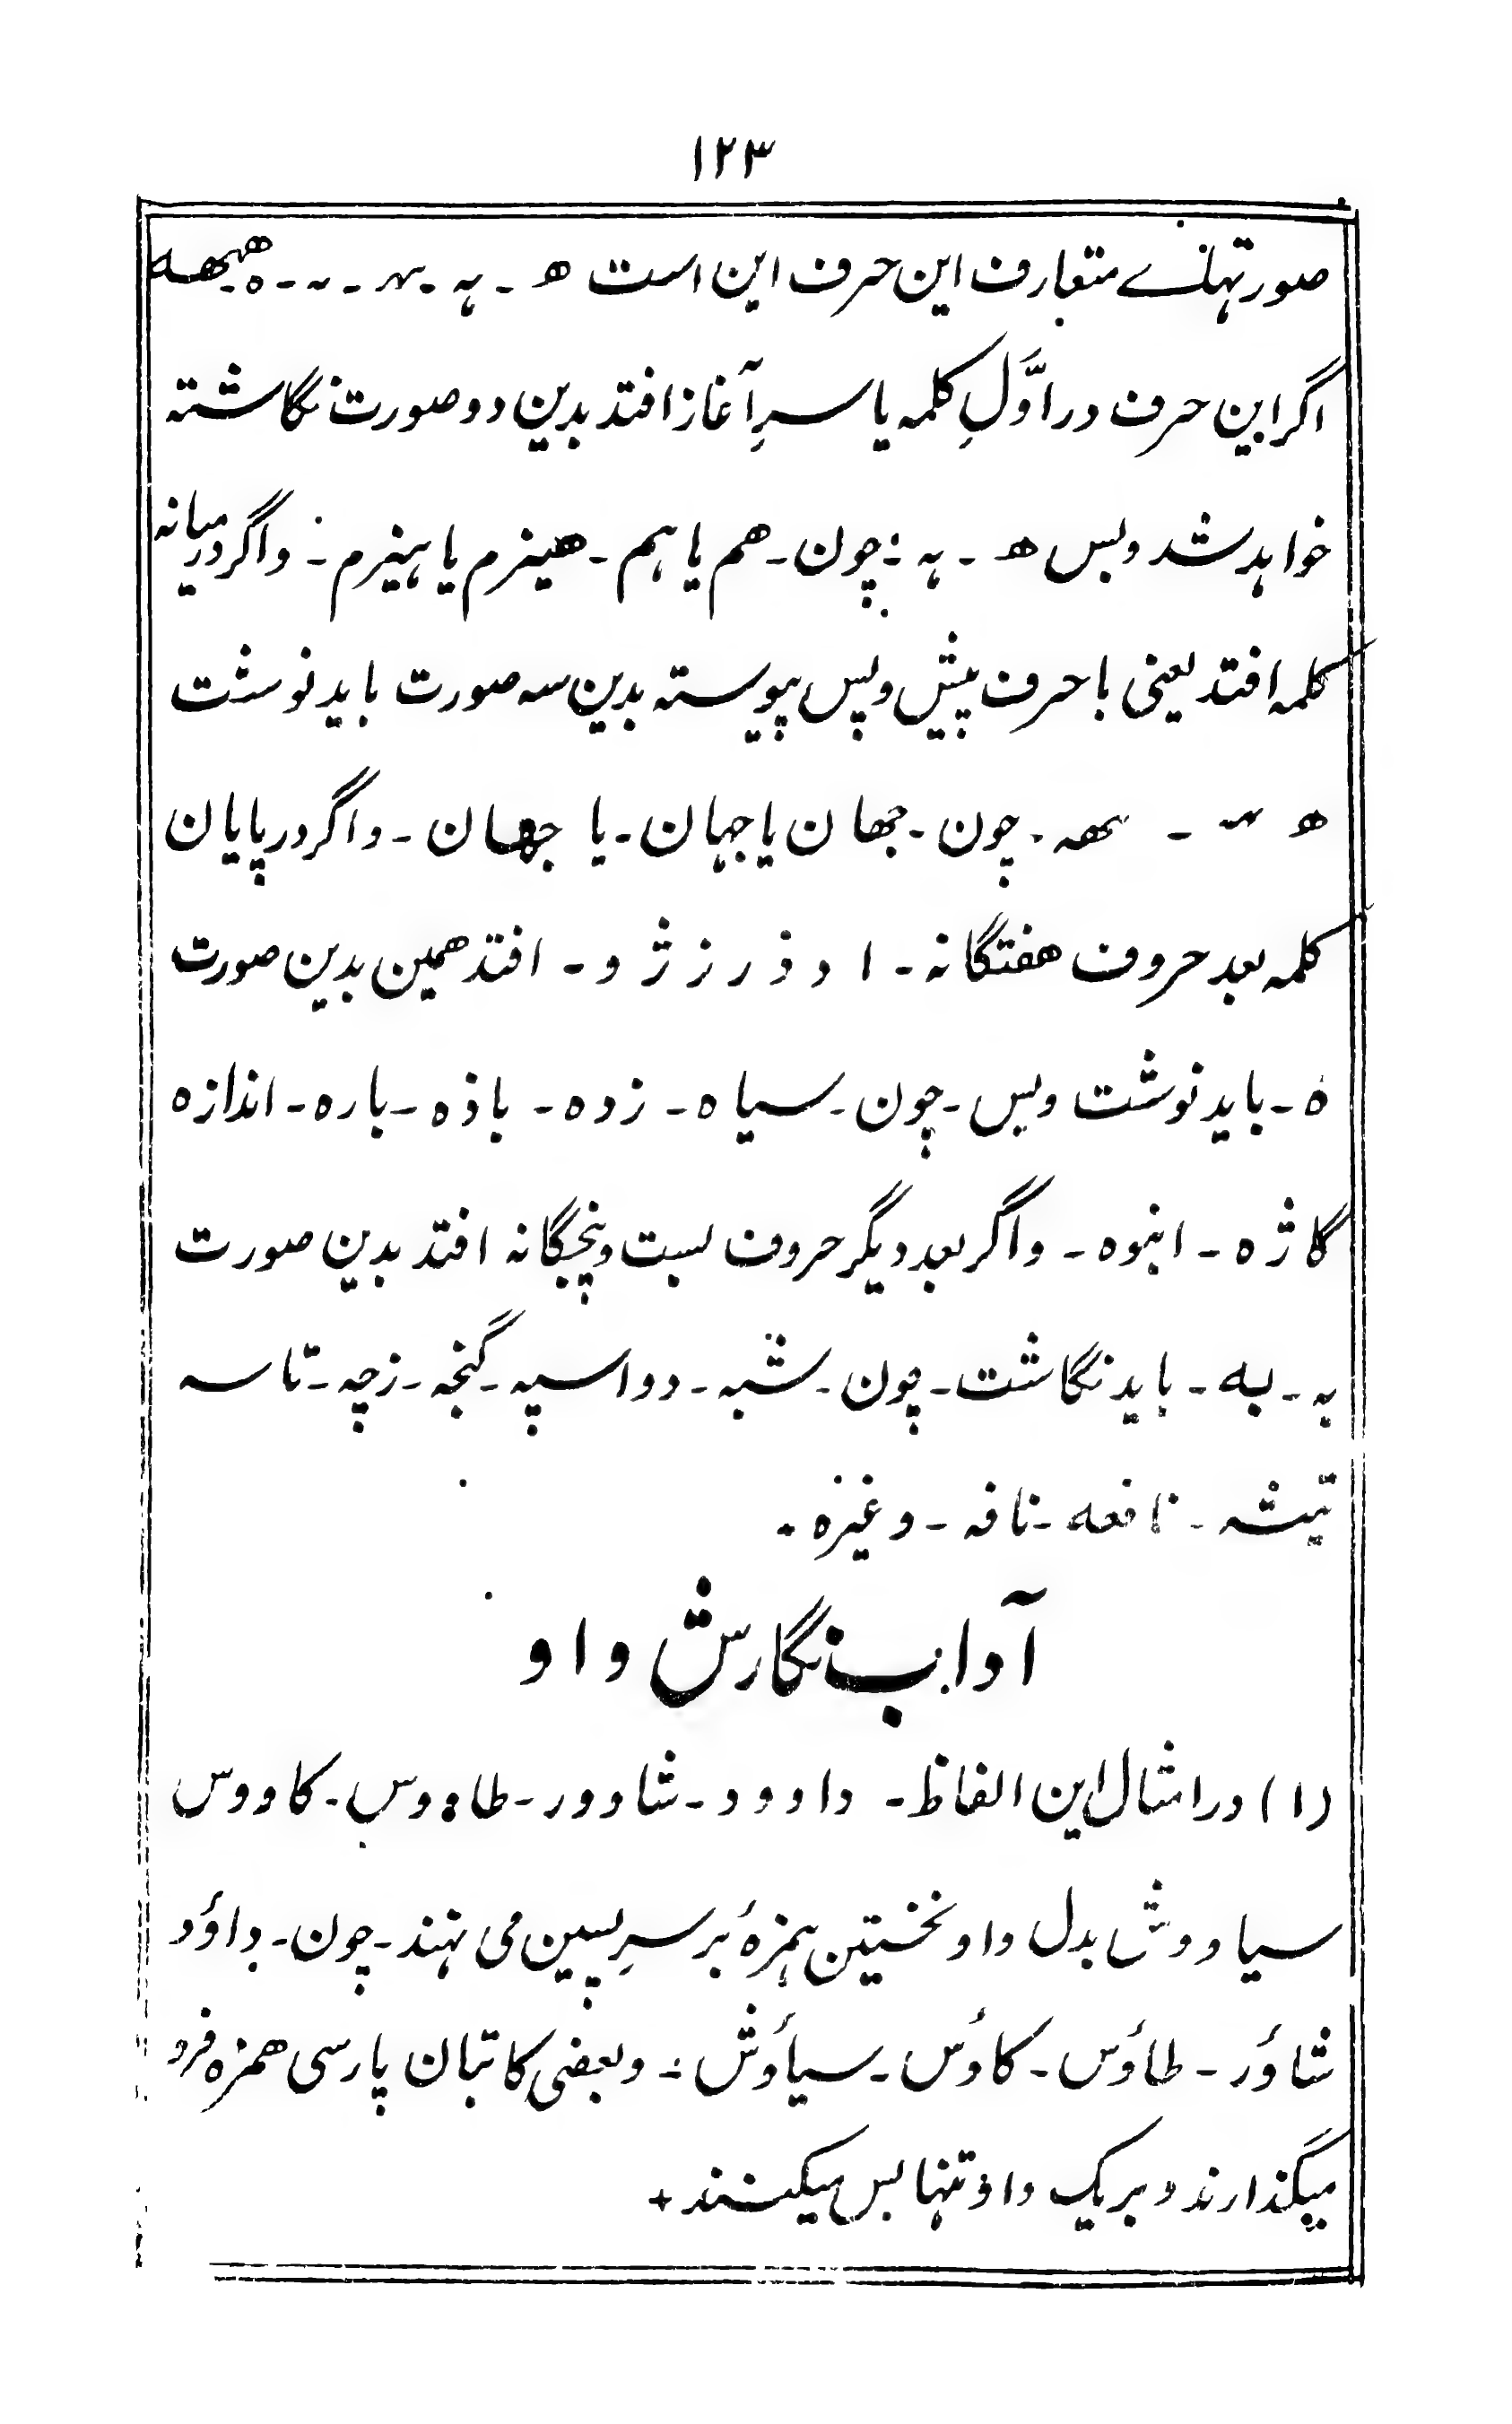 ۱۲۳
صورتهاے متعارف این حرف این است ھ - ہہ - ـہـ - ـہ - ہ - ھہـھـہ
اگر این حرف در اوَّلِ کلمہ یا سرِ آغاز افتد بدین دو صورت نگاشتہ
خواہد شد وبس ھ - ہہ : چون - ھم یا ہم - ھیزم یا ہیزم - واگر درمیانہ
کلمہ افتد یعنی با حرف پیش وپس پیوستہ بدین سہ صورت باید نوشت
ھ ـہـ - ـھـ - چون - جھان یا جہان - یا جھان - واگر در پایان
کلمہ بعد حروف ھفتگانہ - ا د ذ ر ز ژ و - افتد ھمین بدین صورت
ہ - باید نوشت وبس - چون - سیاہ - زدہ - باذہ - بارہ - اندازہ
گاژہ - انبوہ - واگر بعد دیگر حروف بست وپنجگانہ افتد بدین صورت
ـہ - ـه - باید نگاشت - چون - شبہ - دواسپہ - گنجہ - زچہ - تاسہ
تیشہ - نافعہ - نافہ - وغیرہ -
آداب نگارش واو
(۱) در امثال این الفاظ - داوود - شاوور - طاووس - کاووس
سیاووش بدل واو نخستین ہمزۂ بر سرِ پسین می نہند - چون - داؤد
شاؤر - طاؤس - کاؤس - سیاؤش - وبعضی کاتبان پارسی ھمزہ فرو
میگذارند و بریک واو تنہا بس میکنند +